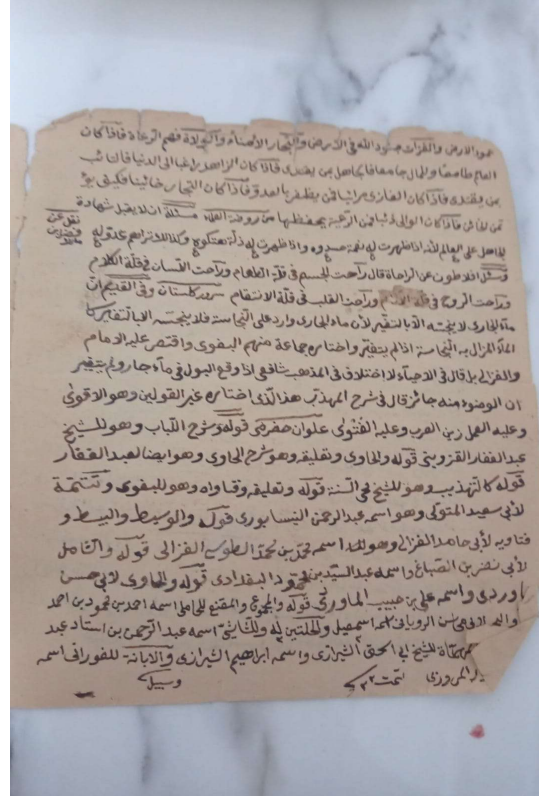 عمود الارض والغزات جنود الله في الارض والتجار الامناء والولاة فهم الرعاة فاذا كان
العالم طامعا وللمال جامعا فالجاهل بمن يقتدى فاذا كان الزاهد راغبا الى الدنيا فالتائب
بمن يقتدى فاذا كان الغازى مرائيا فمن يظفر بالعدو فاذا كان التجار خائنا فكيف
فاذا كان الوالى ذئبا فمن الرعية يحفظها من روضة العلماء مسئلة ان لا يقبل شهادة
الجاهل على العالم لانه اذا ظهرت له نعمة حسدوه واذا ظهرت له ذلة هتكوه وكذا
وسئل افلاطون عن الراحاة قال راحت الجسم في قلة الطعام وراحت اللسان في قلة الكلام
وراحت الروح في قلة وراحت القلب في قلة الانتقام وفي القديم ان
ماء الجارى لا ينجسه الا بالتغير لان ماء الجارى وارد على النجاسة فلا ينجسه الا بالتغير
الماء المزال به النجاسة اذا لم يتغير واختاره جماعة منهم البغوى واقتصر عليه الامام
والغزالى بل قال في الاحياء لا اختلاف في المذهب شافعى اذا وقع البول في ماء جار ولم يتغير
ان الوضوء منه جائز قال في شرح المهذب هذا الذى اختاره غير القولين وهو الاقوى
وعليه العمل وعليه الفتوى قوله وشرح اللباب وهو للشيخ
عبد الغفار القزوينى قوله والحاوى وتعليقه وهو شرح الحاوى وهو ايضا لعبد الغفار
قوله كالتهذيب وهو للشيخ محى السنة قوله وتعليقه وفتاواه وهو للبغوى وتتمة
لأبى سعيد المتولى وهو اسمه عبد الرحمن النيسابورى قوله والوسيط والبسيط و
فتاويه لأبى حامد الغزالى وهو اسمه محمد بن محمد الطوسى الغزالى قوله والشامل
لأبى نصر بن الصباغ واسمه عبد السيد بن محمود البغدادى قوله والحاوى لابى حسن
ماوردى واسمه على بن حبيب الماوردى قوله والمجموع والمقنع للمحاملى اسمه احمد بن محمود بن احمد
الرويانى اسمعيل والحلية له وللشاشى اسمه عبد الرحمن بن استاد عبد
للشيخ ابى اسحق الشيرازى واسمه ابراهيم الشيرازى والابانة للفورانى اسمه
المروزى تمت